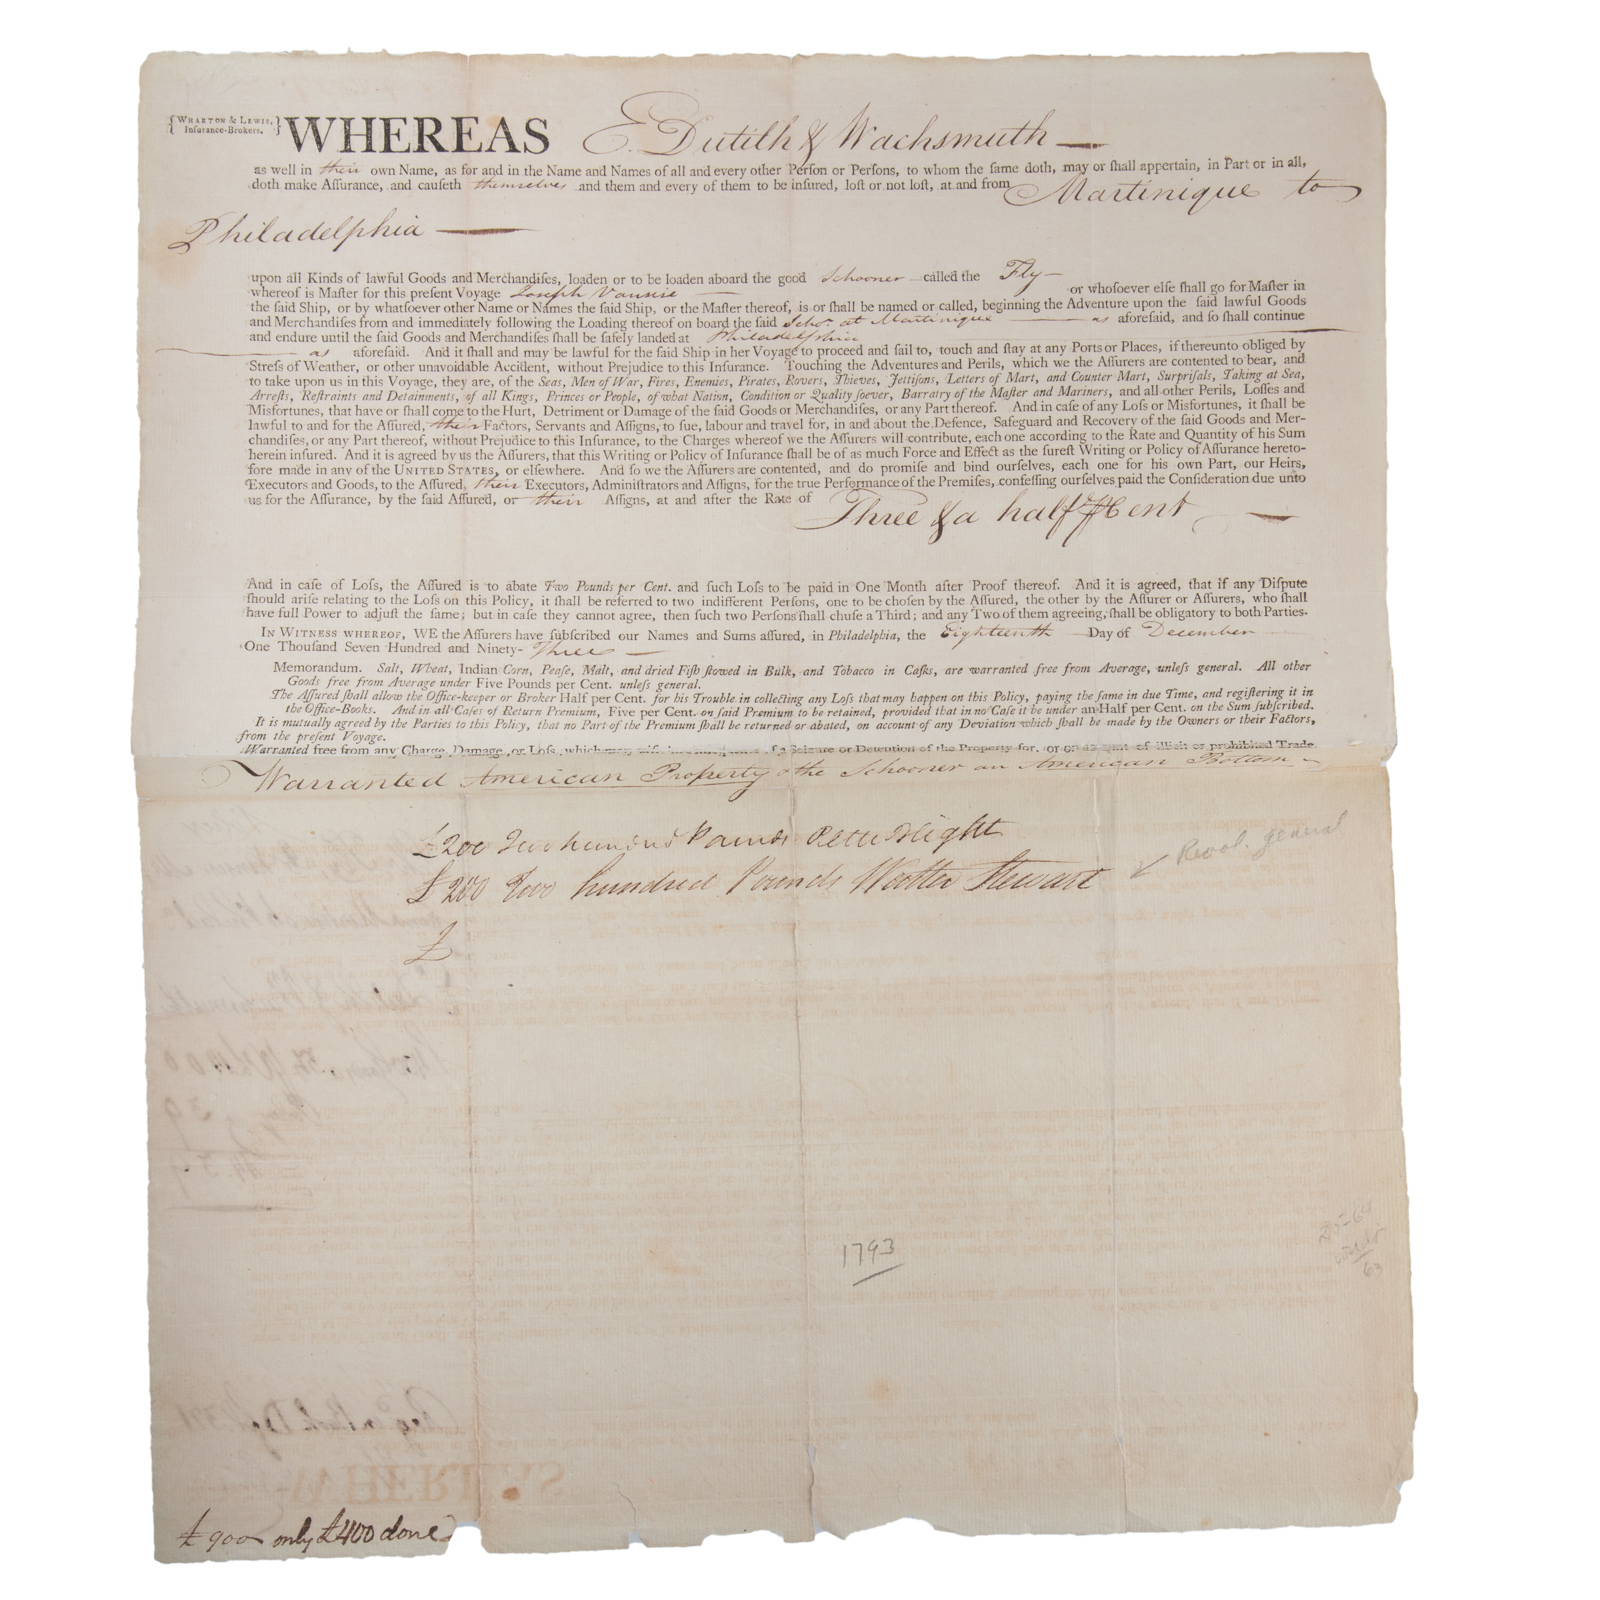 { WHARTON & LEWIS, Inſurance-Brokers. } WHEREAS E. Dutilh & Wachsmuth —
as well in their own Name, as for and in the Name and Names of all and every other Perſon or Perſons, to whom the ſame doth, may or ſhall appertain, in Part or in all,
doth make Aſſurance, and cauſeth themselves and them and every of them to be inſured, loſt or not loſt, at and from Martinique to
Philadelphia —
upon all Kinds of lawful Goods and Merchandiſes, loaden or to be loaden aboard the good Schooner called the Fly —
whereof is Maſter for this preſent Voyage Joseph Vannise — or whoſoever elſe ſhall go for Maſter in
the ſaid Ship, or by whatſoever other Name or Names the ſaid Ship, or the Maſter thereof, is or ſhall be named or called, beginning the Adventure upon the ſaid lawful Goods
and Merchandiſes from and immediately following the Loading thereof on board the ſaid Schr. at Martinique — as aforeſaid, and ſo ſhall continue
and endure until the ſaid Goods and Merchandiſes ſhall be ſafely landed at Philadelphia —
— as aforeſaid. And it ſhall and may be lawful for the ſaid Ship in her Voyage to proceed and ſail to, touch and ſtay at any Ports or Places, if thereunto obliged by
Streſs of Weather, or other unavoidable Accident, without Prejudice to this Inſurance. Touching the Adventures and Perils, which we the Aſſurers are contented to bear, and
to take upon us in this Voyage, they are, of the Seas, Men of War, Fires, Enemies, Pirates, Rovers, Thieves, Jettiſons, Letters of Mart, and Counter Mart, Surpriſals, Taking at Sea,
Arreſts, Reſtraints and Detainments, of all Kings, Princes or People, of what Nation, Condition or Quality ſoever, Barratry of the Maſter and Mariners, and all other Perils, Loſſes and
Misfortunes, that have or ſhall come to the Hurt, Detriment or Damage of the ſaid Goods or Merchandiſes, or any Part thereof. And in caſe of any Loſs or Misfortunes, it ſhall be
lawful to and for the Aſſured, their Factors, Servants and Aſſigns, to ſue, labour and travel for, in and about the Defence, Safeguard and Recovery of the ſaid Goods and Mer-
chandiſes, or any Part thereof, without Prejudice to this Inſurance, to the Charges whereof we the Aſſurers will contribute, each one according to the Rate and Quantity of his Sum
herein inſured. And it is agreed by us the Aſſurers, that this Writing or Policy of Inſurance ſhall be of as much Force and Effect as the ſureſt Writing or Policy of Aſſurance hereto-
fore made in any of the UNITED STATES, or elſewhere. And ſo we the Aſſurers are contented, and do promiſe and bind ourſelves, each one for his own Part, our Heirs,
Executors and Goods, to the Aſſured, their Executors, Adminiſtrators and Aſſigns, for the true Performance of the Premiſes, confeſſing ourſelves paid the Conſideration due unto
us for the Aſſurance, by the ſaid Aſſured, or their Aſſigns, at and after the Rate of Three & a half P Cent —
And in caſe of Loſs, the Aſſured is to abate Two Pounds per Cent. and ſuch Loſs to be paid in One Month after Proof thereof. And it is agreed, that if any Diſpute
ſhould ariſe relating to the Loſs on this Policy, it ſhall be referred to two indifferent Perſons, one to be choſen by the Aſſured, the other by the Aſſurer or Aſſurers, who ſhall
have full Power to adjuſt the ſame; but in caſe they cannot agree, then ſuch two Perſons ſhall chuſe a Third; and any Two of them agreeing, ſhall be obligatory to both Parties.
IN WITNESS WHEREOF, WE the Aſſurers have ſubſcribed our Names and Sums aſſured, in Philadelphia, the Eighteenth Day of December
One Thouſand Seven Hundred and Ninety- Three —
Memorandum. Salt, Wheat, Indian Corn, Peaſe, Malt, and dried Fiſh ſtowed in Bulk, and Tobacco in Caſks, are warranted free from Average, unleſs general. All other
Goods free from Average under Five Pounds per Cent. unleſs general.
The Aſſured ſhall allow the Office-keeper or Broker Half per Cent. for his Trouble in collecting any Loſs that may happen on this Policy, paying the ſame in due Time, and regiſtering it in
the Office-Books. And in all Caſes of Return Premium, Five per Cent. on ſaid Premium to be retained, provided that in no Caſe it be under an Half per Cent. on the Sum ſubſcribed.
It is mutually agreed by the Parties to this Policy, that no Part of the Premium ſhall be returned or abated, on account of any Deviation which ſhall be made by the Owners or their Factors,
from the preſent Voyage.
Warranted free from any Charge, Damage, or Loſs, which may of a Seizure or Detention of the Property for, or on account of illicit or prohibited Trade.
Warranted American Property & the Schooner an American Bottom
£200 Two hundred Pounds Peter Blight
£200 Two hundred Pounds Walter Stewart ✓ Revol. general
£
1793
63
£900 only £400 done